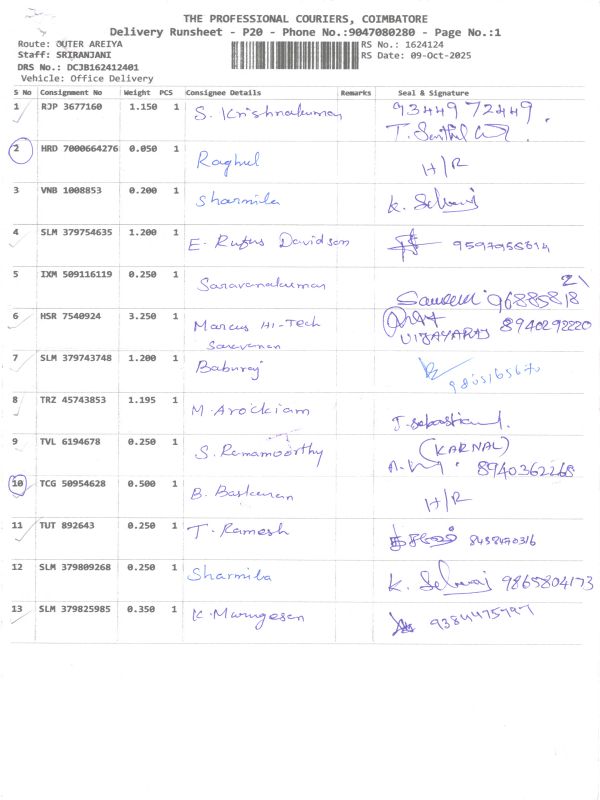 THE PROFESSIONAL COURIERS, COIMBATORE
Delivery Runsheet - P20 - Phone No.:9047080280 - Page No.:1
Route: OUTER AREIYA
RS No.: 1624124
Staff: SRIRANJANI
RS Date: 09-Oct-2025
DRS No.: DCJB162412401
Vehicle: Office Delivery
S No Consignment No Weight PCS Consignee Details Remarks Seal & Signature
1 RJP 3677160 1.150 1 S. Krishnakumar 9344972449
2 HRD 7000664276 0.050 1 Raghul H/R
3 VNB 1008853 0.200 1 Sharmila K. Selvaraj
4 SLM 379754635 1.200 1 E. Rufus Davidson
5 IXM 509116119 0.250 1 Saravanakumar
6 HSR 7540924 3.250 1 Marcus Hi-Tech VIJAYARAJ 8940292220
Saravanan
7 SLM 379743748 1.200 1 Baburaj
8 TRZ 45743853 1.195 1 M. Arockiam J. Sebastian
9 TVL 6194678 0.250 1 S. Ramamoorthy (KARNAL)
8940362268
10 TCG 50954628 0.500 1 B. Baskaran H/R
11 TUT 892643 0.250 1 T. Ramesh
12 SLM 379809268 0.250 1 Sharmila K. Selvaraj 9865804173
13 SLM 379825985 0.350 1 K. Murugesan